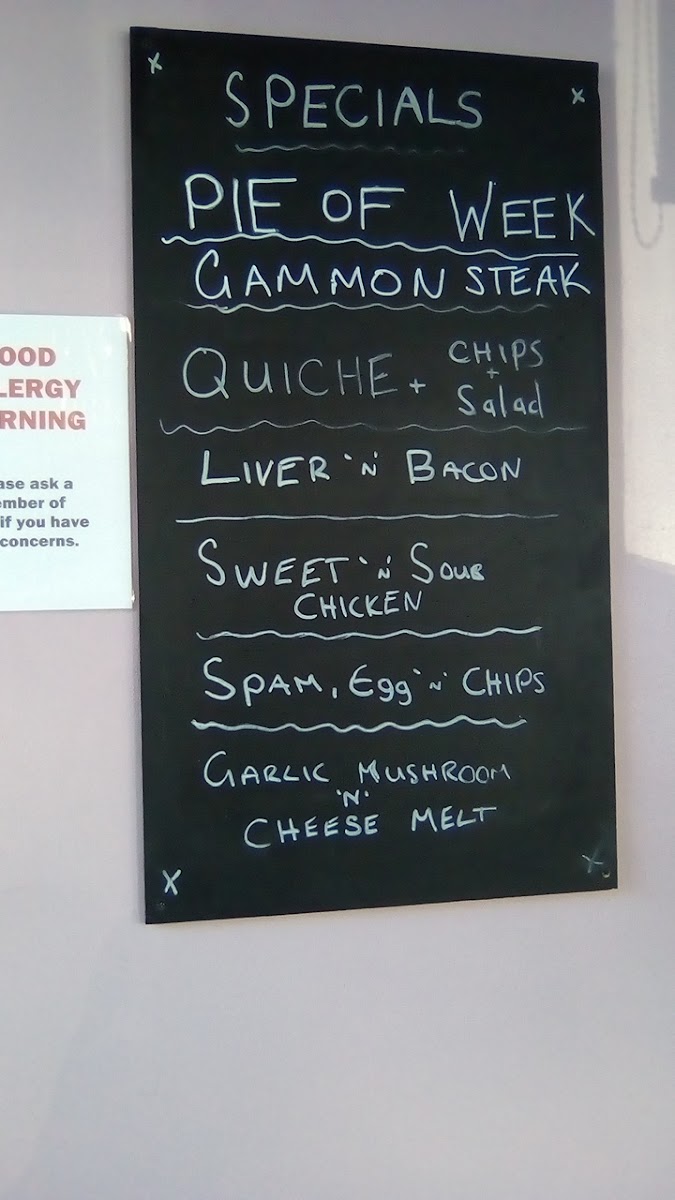 SPECIALS
PIE OF WEEK
GAMMON STEAK
QUICHE + CHIPS
+
Salad
LIVER 'N' BACON
SWEET 'N' SOUR
CHICKEN
SPAM, Egg 'N' CHIPS
GARLIC MUSHROOM
'N'
CHEESE MELT
OOD
LERGY
RNING
ase ask a
mber of
if you have
concerns.